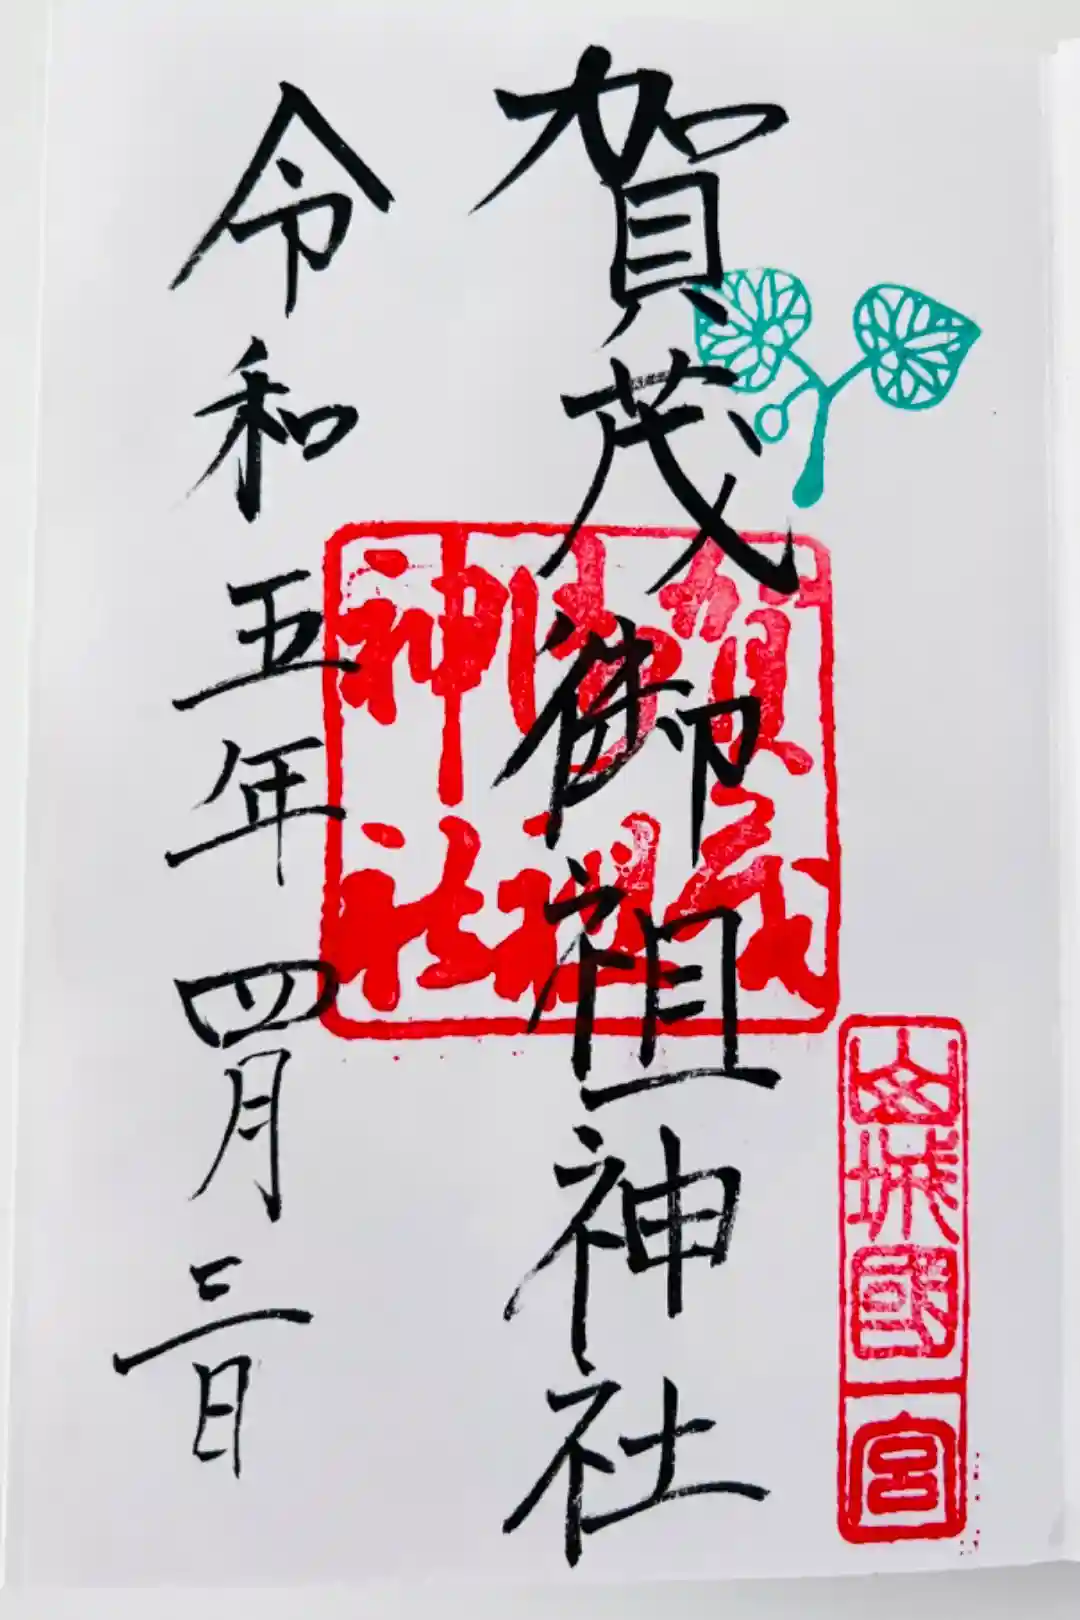 賀茂御祖神社
令和五年四月三日
賀茂
御祖
神社
山城國一宮